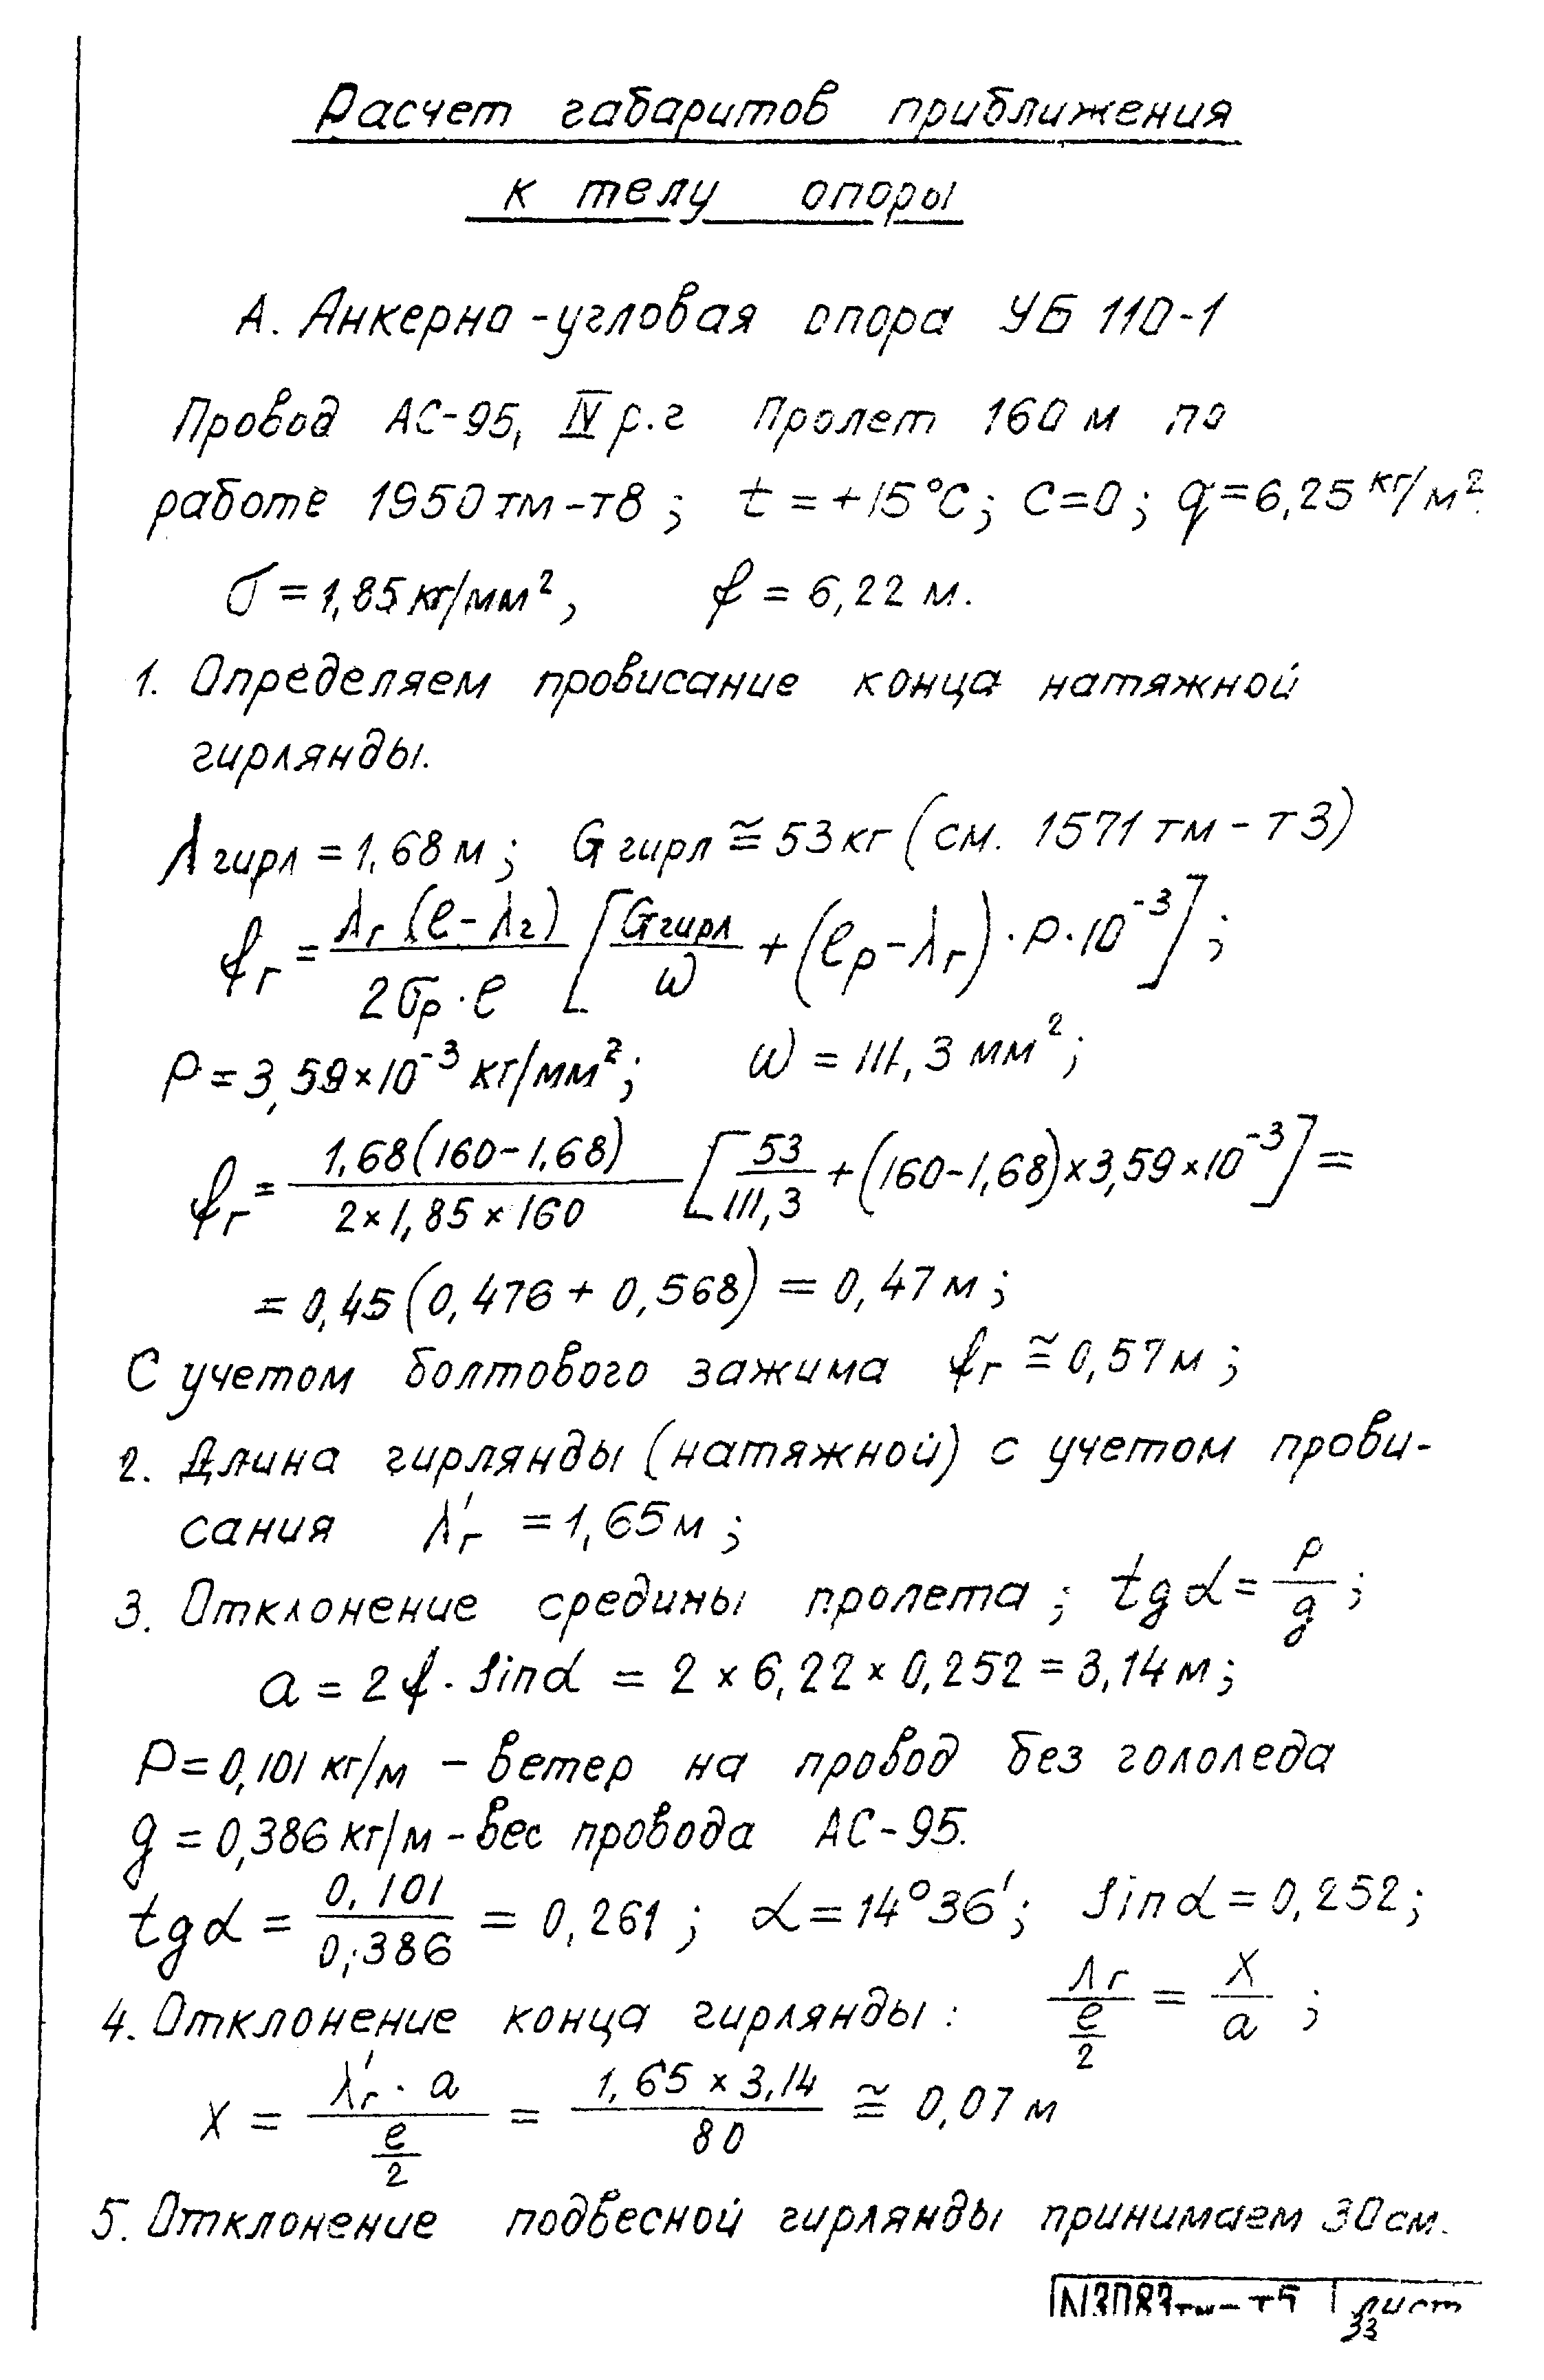 Расчет габаритов приближения
к телу опоры
А. Анкерно-угловая опора УБ 110-1
Провод АС-95, IV р.г Пролет 160 м по
работе 1950тм-т8; t=+15°C; C=0; q=6,25 кг/м²
σ=1,85 кг/мм², f = 6,22 м.
1. Определяем провисание конца натяжной
гирлянды.
λгирл = 1,68 м; Gгирл ≅ 53 кг (см. 1571 тм-т3)
fг = λг (ℓ-λг) / 2σр·ℓ [Gгирл/ω + (ℓр-λг)·P·10⁻³];
P=3,59×10⁻³ кг/мм²; ω = 111,3 мм²;
fг = 1,68(160-1,68) / 2×1,85×160 [53/111,3 + (160-1,68)×3,59×10⁻³] =
= 0,45 (0,476 + 0,568) = 0,47 м;
С учетом болтового зажима fг ≅ 0,57 м;
2. Длина гирлянды (натяжной) с учетом прови-
сания λ'г = 1,65 м;
3. Отклонение средины пролета; tgα = P/g;
a = 2f·sinα = 2 × 6,22 × 0,252 = 3,14 м;
P=0,101 кг/м – ветер на провод без гололеда
g = 0,386 кг/м – вес провода АС-95.
tgα = 0,101/0,386 = 0,261; α = 14°36'; sinα = 0,252;
4. Отклонение конца гирлянды: λг / (ℓ/2) = x/a;
x = λ'г·a / (ℓ/2) = 1,65 × 3,14 / 80 ≅ 0,07 м
5. Отклонение подвесной гирлянды принимаем 30 см.
N3083тм-т5 лист
33